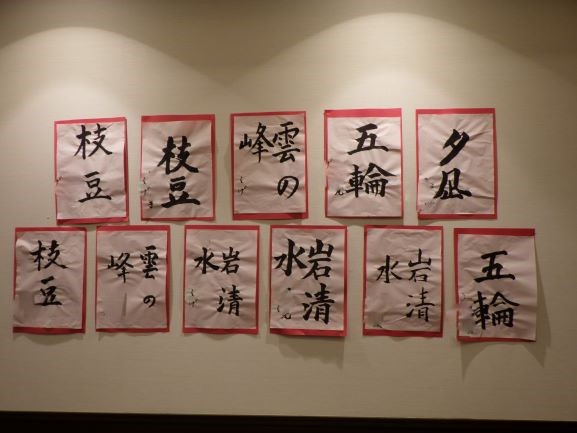 夕凪
五輪
雲の
峰
枝豆
枝豆
五輪
岩清
水
岩清
水
岩清
水
雲の
峰
枝豆